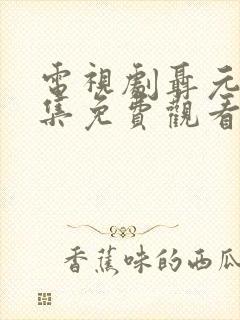 電視劇聶元
集免費觀看
香蕉味的西瓜